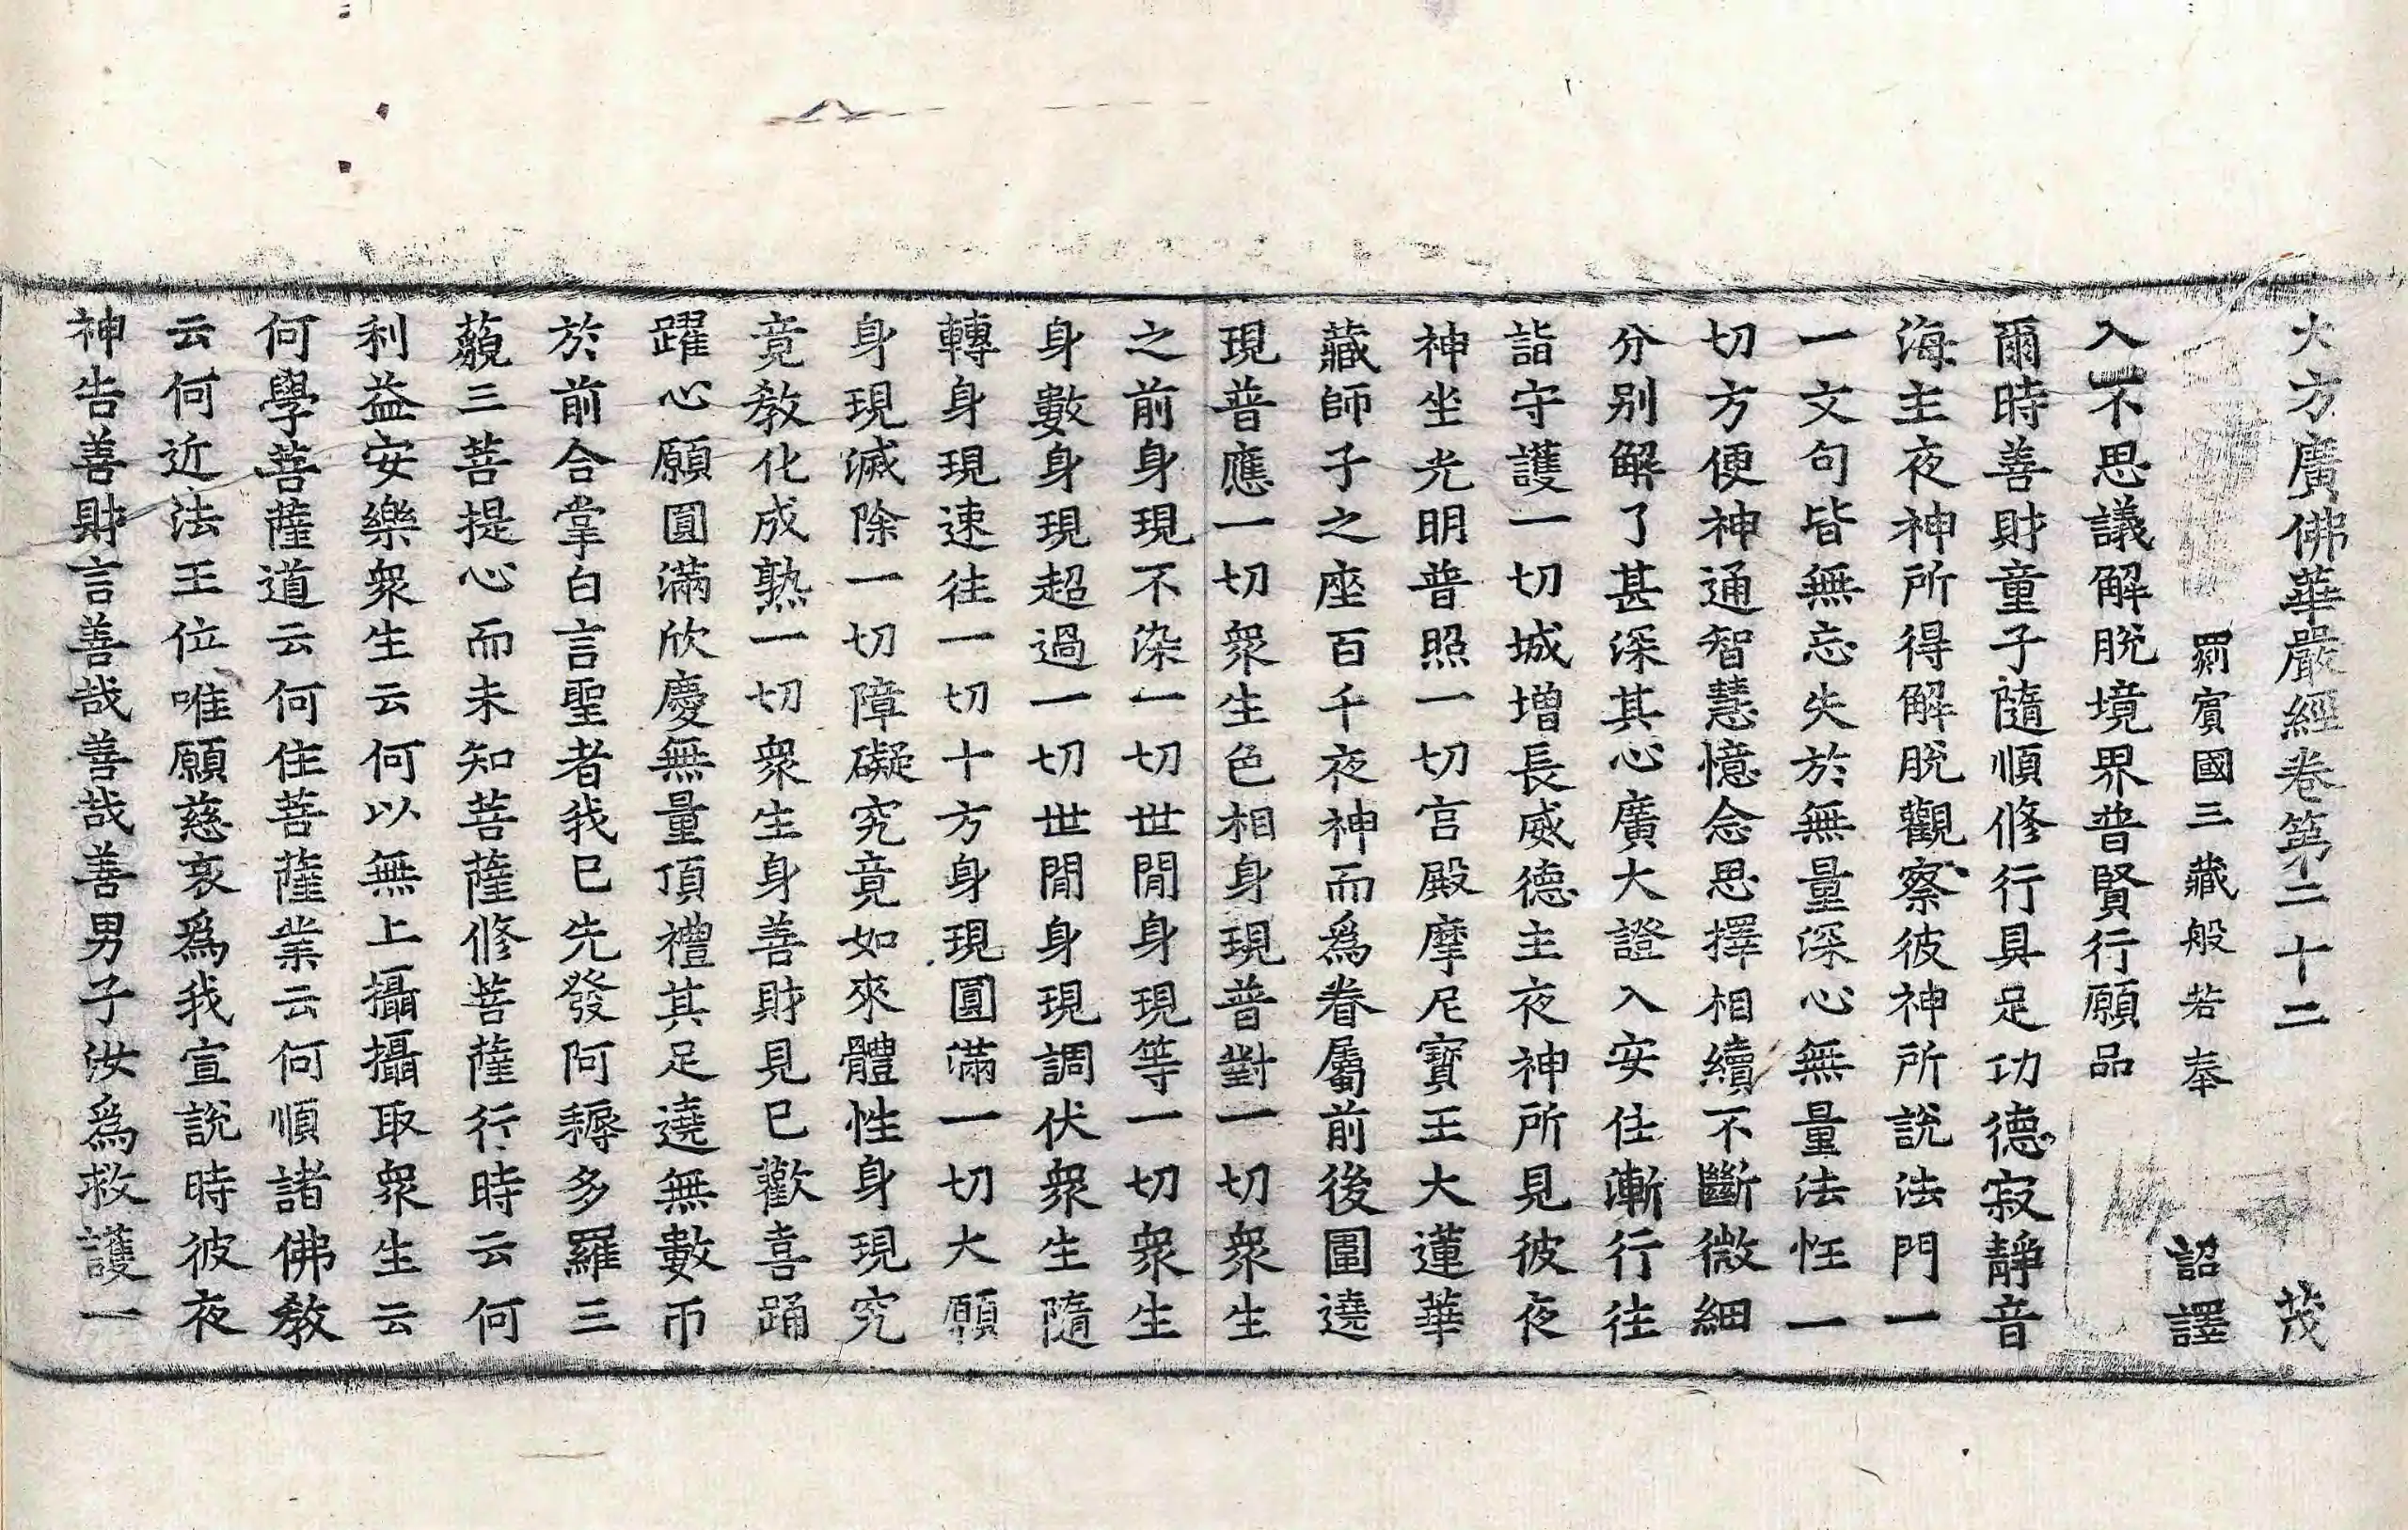 大方廣佛華嚴經卷第二十二　茂
罽賓國三藏般若奉　詔譯
入不思議解脫境界普賢行願品
爾時善財童子隨順修行具足功德寂靜音
海主夜神所得解脫觀察彼神所說法門一
一文句皆無忘失於無量深心無量法性一
切方便神通智慧憶念思擇相續不斷微細
分別解了甚深其心廣大證入安住漸行往
詣守護一切城增長威德主夜神所見彼夜
神坐光明普照一切宮殿摩尼寶王大蓮華
藏師子之座百千夜神而爲眷屬前後圍遶
現普應一切衆生色相身現普對一切衆生
之前身現不染一切世閒身現等一切衆生
身數身現超過一切世閒身現調伏衆生隨
轉身現速往一切十方身現圓滿一切大願
身現滅除一切障礙究竟如來體性身現究
竟教化成熟一切衆生身善財見已歡喜踊
躍心願圓滿欣慶無量頂禮其足遶無數帀
於前合掌白言聖者我已先發阿耨多羅三
藐三菩提心而未知菩薩修菩薩行時云何
利益安樂衆生云何以無上攝攝取衆生云
何學菩薩道云何住菩薩業云何順諸佛教
云何近法王位唯願慈哀爲我宣說時彼夜
神告善財言善哉善哉善男子汝爲救護一